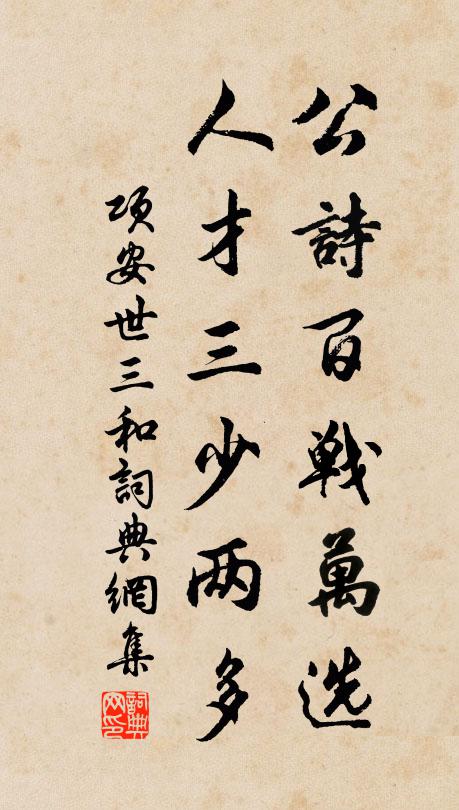 公詩百戰萬选
人才三少两多
项安世三和詞典網集
詞典网印